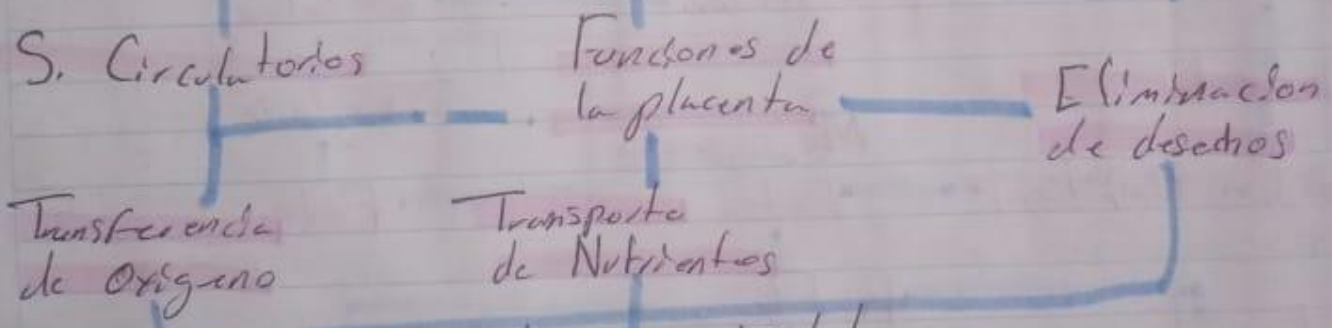 S. Circulatorios
Funciones de
la placenta
Eliminacion
de desechos
Transferencia
de Oxigeno
Transporte
de Nutrientes